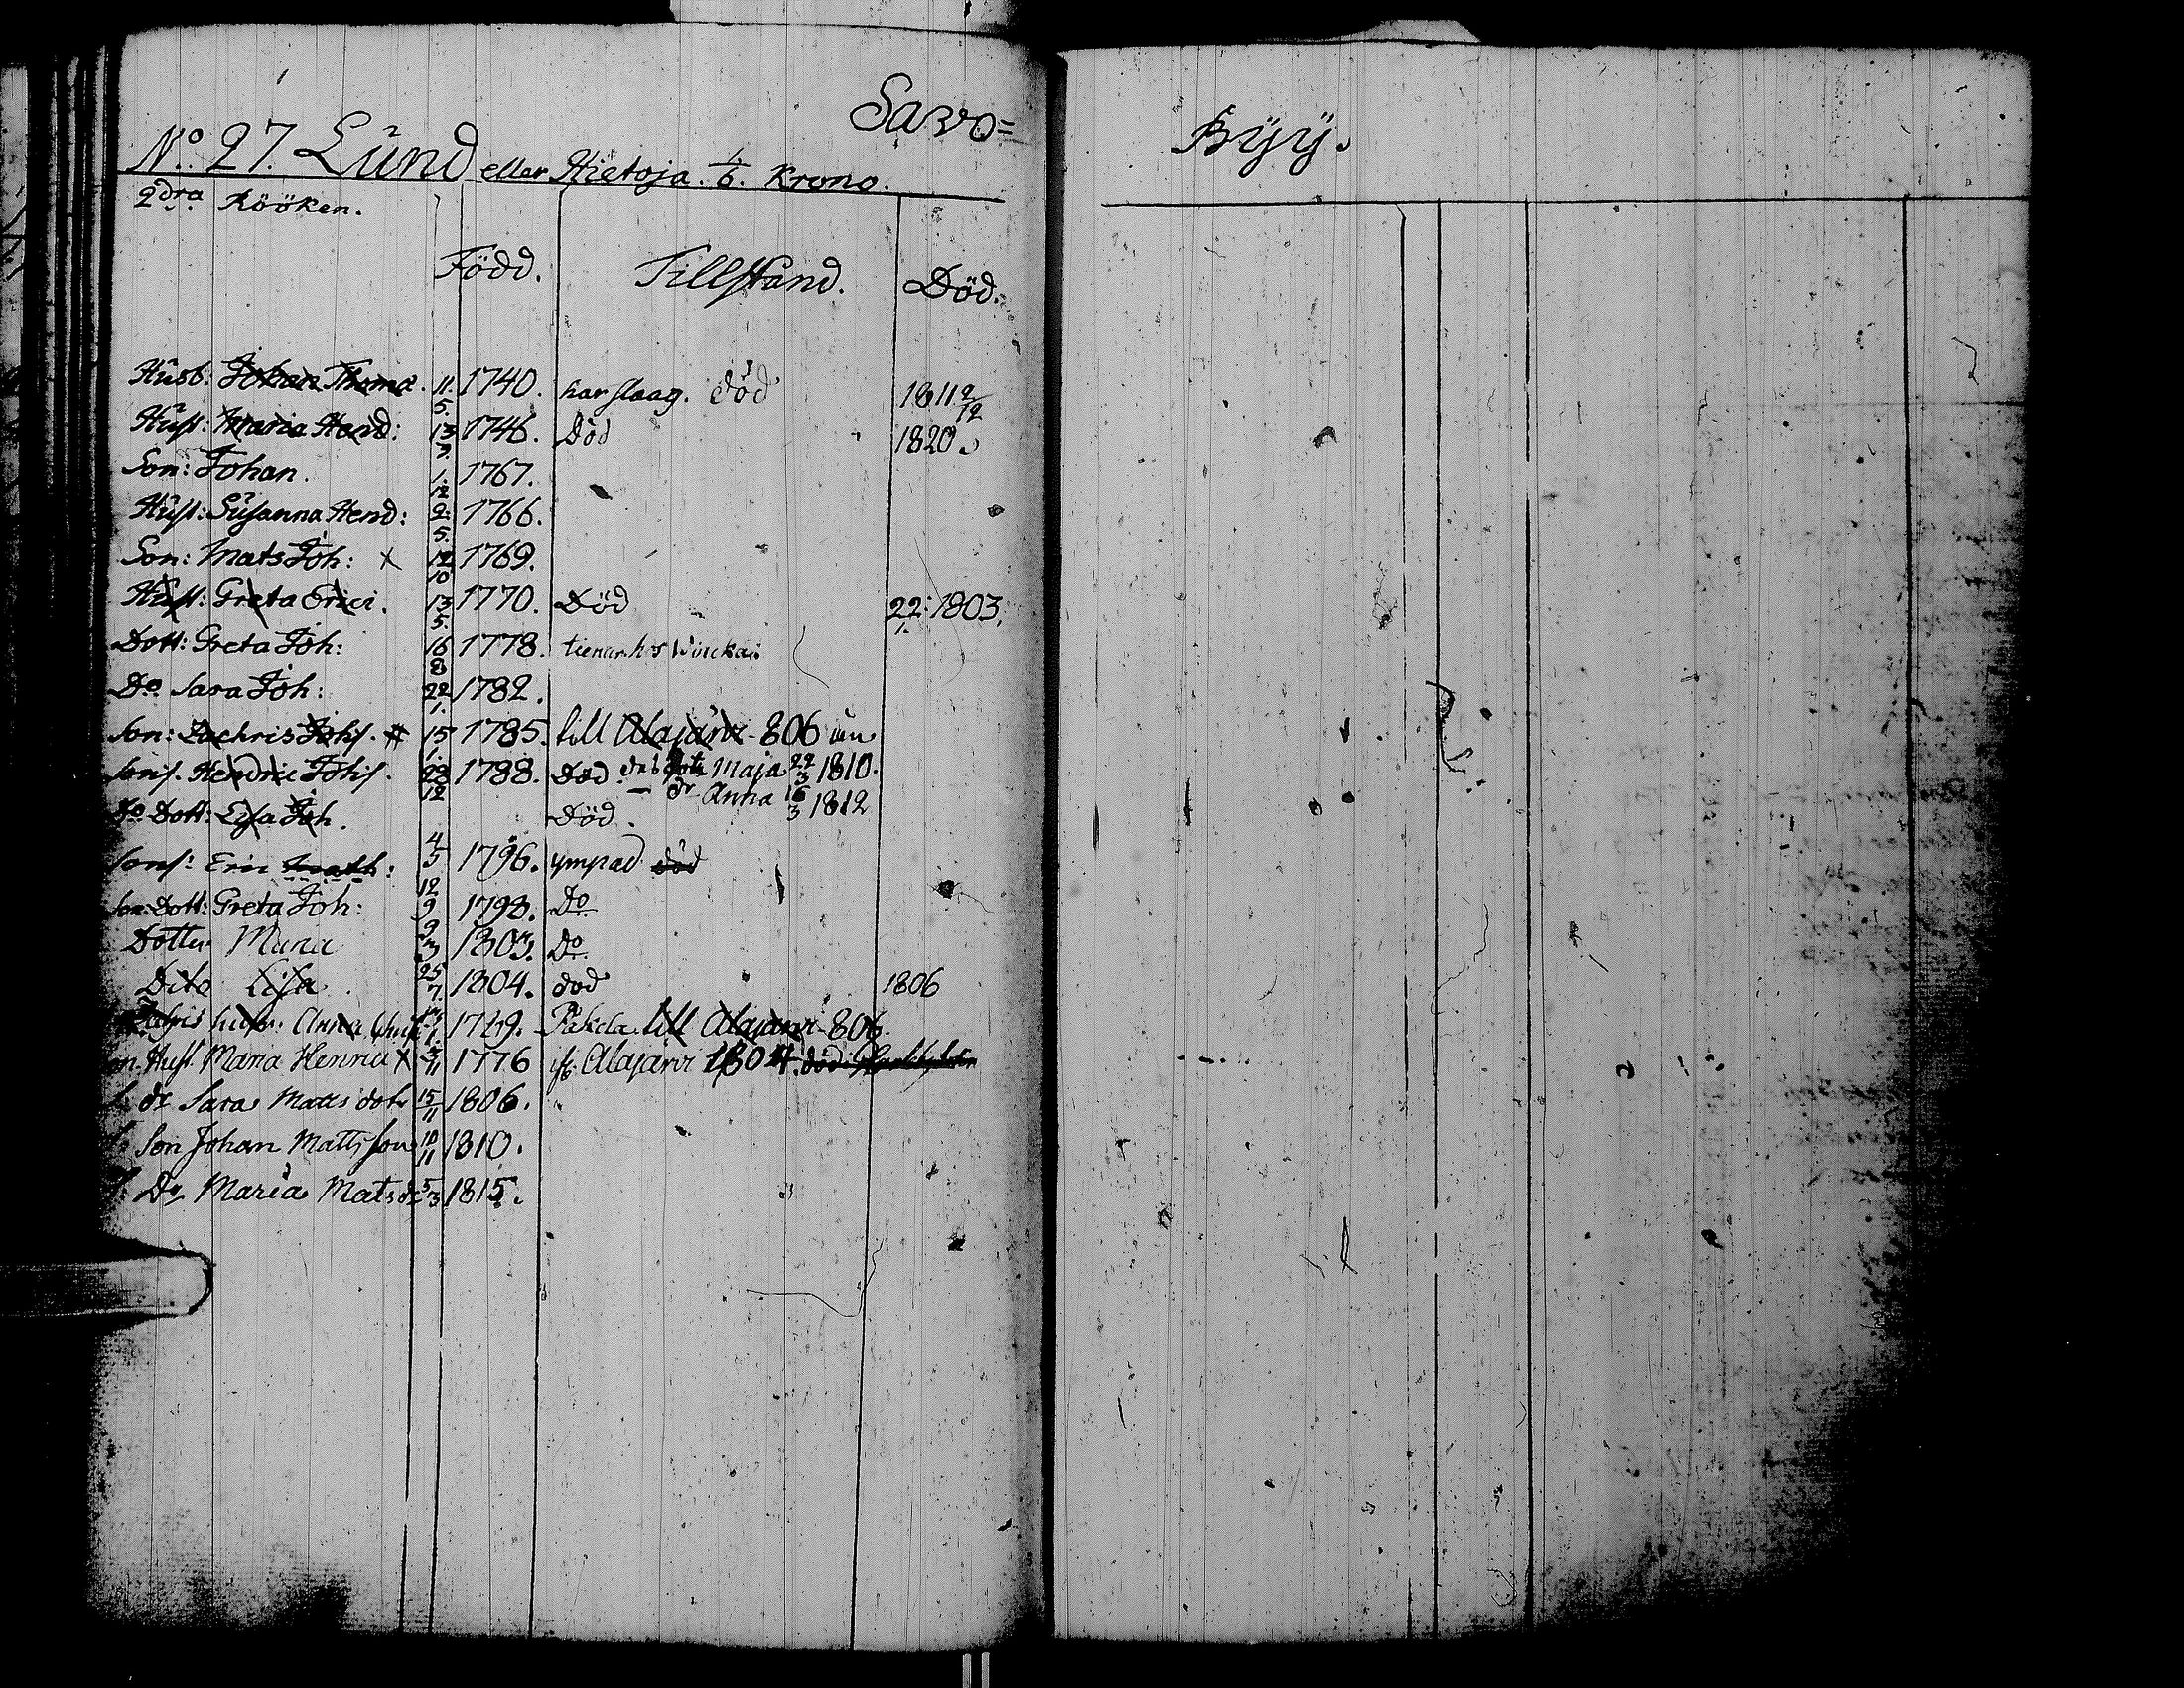 Savo= Byy.
No. 27. Lund eller Hietoja. 1/6. Krono.
2dra Rööken.
Född. Tillstånd. Död.
Husb: Johan Thoma. 11. 5. 1740. död 1811 2/12
Hust: Maria Hend: 13 3. 1746. Död 1820.
Son: Johan. 1. 12 1767.
Hust: Susanna Hend: 2. 5. 1766.
Son: Mats Joh: x 12 10 1769.
Hust: Greta Erici. 13 5. 1770. Död 22. 1. 1803.
Dott: Greta Joh: 16 8 1778. tienar hos
Do Sara Joh: 22 1. 1782.
Son: Zachris Johs. # 15 1. 1785. till Alajärvi 806
Sons. Hendric Johs. 28 12 1788. Död Maja 22/3 1810.
dr Anna 16/3 1812
Do Dott: Lisa Joh. Död
Sons: Eric Math: 4/5 1796. ympad död
Son: Dott: Greta Joh: 12 9 1798. Do
Dotter Maria 9 3 1803. Do
Dito Lisa 25 7. 1804. död 1806
hustr: Anna 1. till Alajärvi 806.
Hust. Maria Henric x 3/11 1776 Alajärvi 1804. död
dr Sara Matts dotr 15/11 1806.
Son Johan Mattsson 10/11 1810.
Dr Maria Mats dr 5/3 1815.